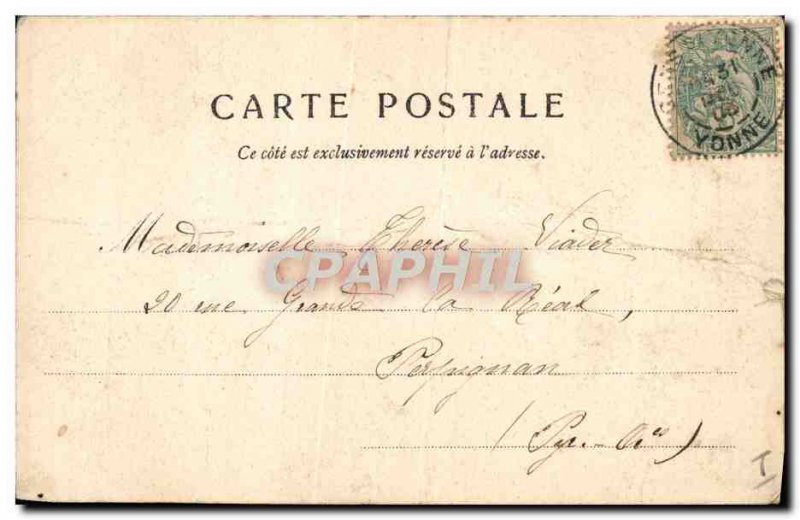 CARTE POSTALE
Ce côté est exclusivement réservé à l'adresse.
YONNE
31
YONNE
Mademoiselle Therèse Viader
CPAPHIL
20 rue Grande la Réal,
Perpignan
(Pyr.-Or<sup>les</sup>)
T